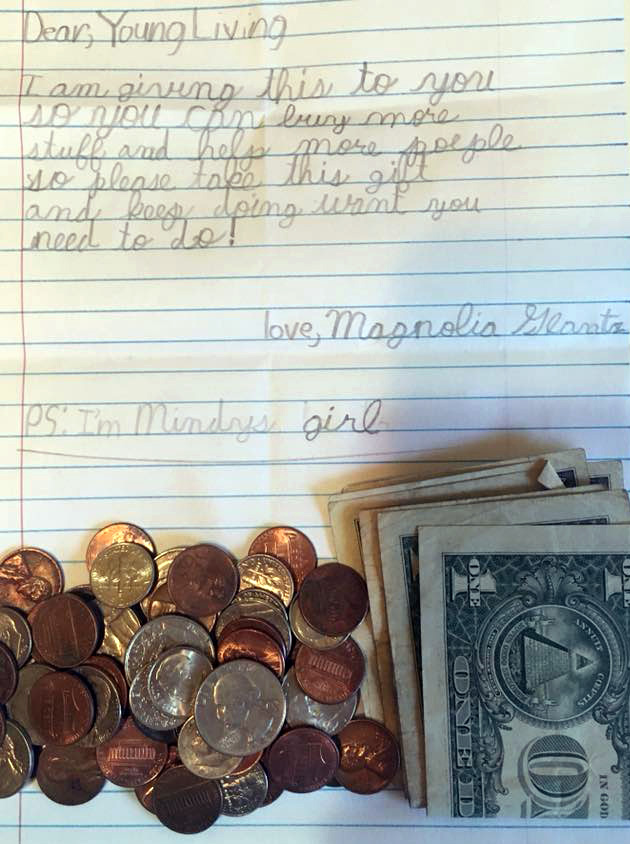 Dear, Young Living
I am giving this to you
so you can buy more
stuff and help more poeple
so please take this gift
and keep doing want you
need to do!
love, Magnolia Glantz
PS: I'm Mindys girl
1
ONE
1
ANNUIT CŒPTIS
ONE
IN GOD